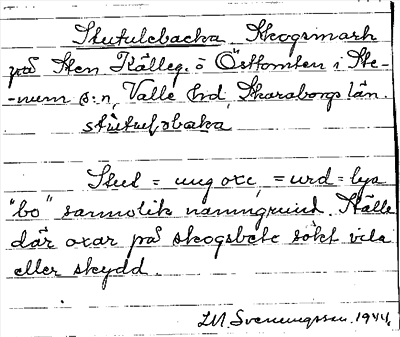 Stutulebacka Skogsmark
på Sten Källeg. å Östtomten i Ste-
-num s:n, Valle hrd, Skaraborgs län.
stutuləbaka
Stut = ung oxe, = urd = lya
"bo" sannolik namngrund. Ställe
där oxar på skogsbete sökt vila
eller skydd.
Sveningsson 1944.